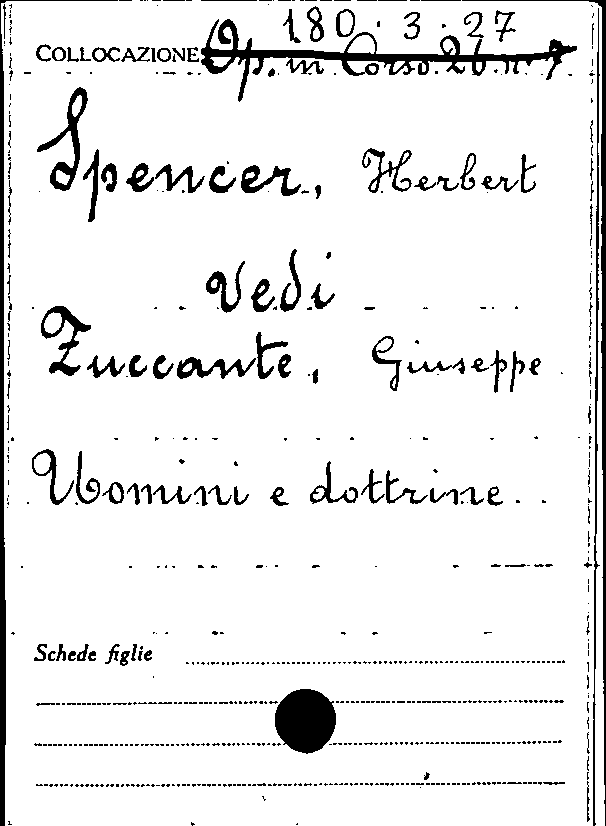 180. 3. 27
COLLOCAZIONE Op. in Corso 26. n. 7
Spencer, Herbert
Vedi
Zuccante, Giuseppe
Uomini e dottrine.
Schede figlie